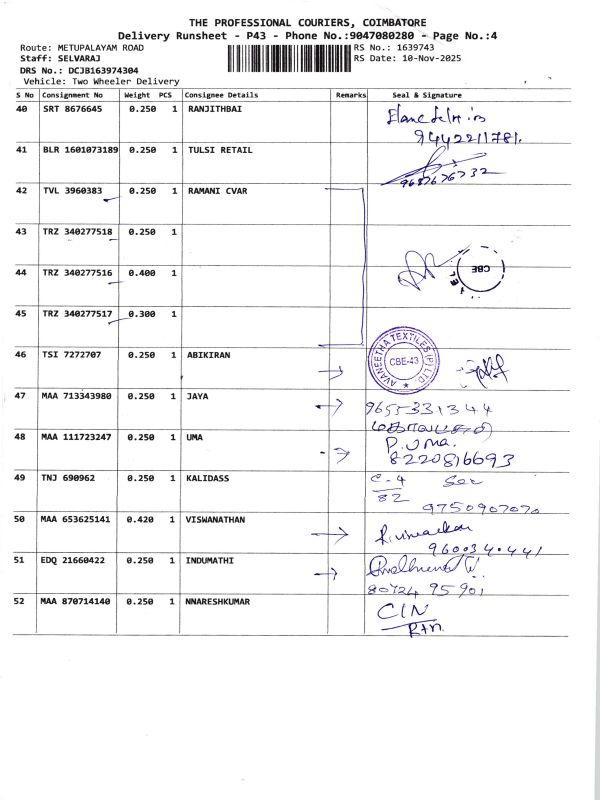 THE PROFESSIONAL COURIERS, COIMBATORE
Delivery Runsheet - P43 - Phone No.:9047080280 - Page No.:4
Route: METUPALAYAM ROAD RS No.: 1639743
Staff: SELVARAJ RS Date: 10-Nov-2025
DRS No.: DCJB163974304
Vehicle: Two Wheeler Delivery
S No Consignment No Weight PCS Consignee Details Remarks Seal & Signature
40 SRT 8676645 0.250 1 RANJITHBAI
9442211781.
41 BLR 1601073189 0.250 1 TULSI RETAIL
9687676732
42 TVL 3960383 0.250 1 RAMANI CVAR
43 TRZ 340277518 0.250 1
44 TRZ 340277516 0.400 1
CBE
45 TRZ 340277517 0.300 1
46 TSI 7272707 0.250 1 ABIKIRAN
AVANEETHA TEXTILES (P) LTD.
CBE-43
47 MAA 713343980 0.250 1 JAYA
9655331344
48 MAA 111723247 0.250 1 UMA
P. UMA.
8220816693
49 TNJ 690962 0.250 1 KALIDASS
C-4
82
9750907070
50 MAA 653625141 0.420 1 VISWANATHAN
9600340441
51 EDQ 21660422 0.250 1 INDUMATHI
80724 95901
52 MAA 870714140 0.250 1 NNARESHKUMAR
CIN
Rtn.